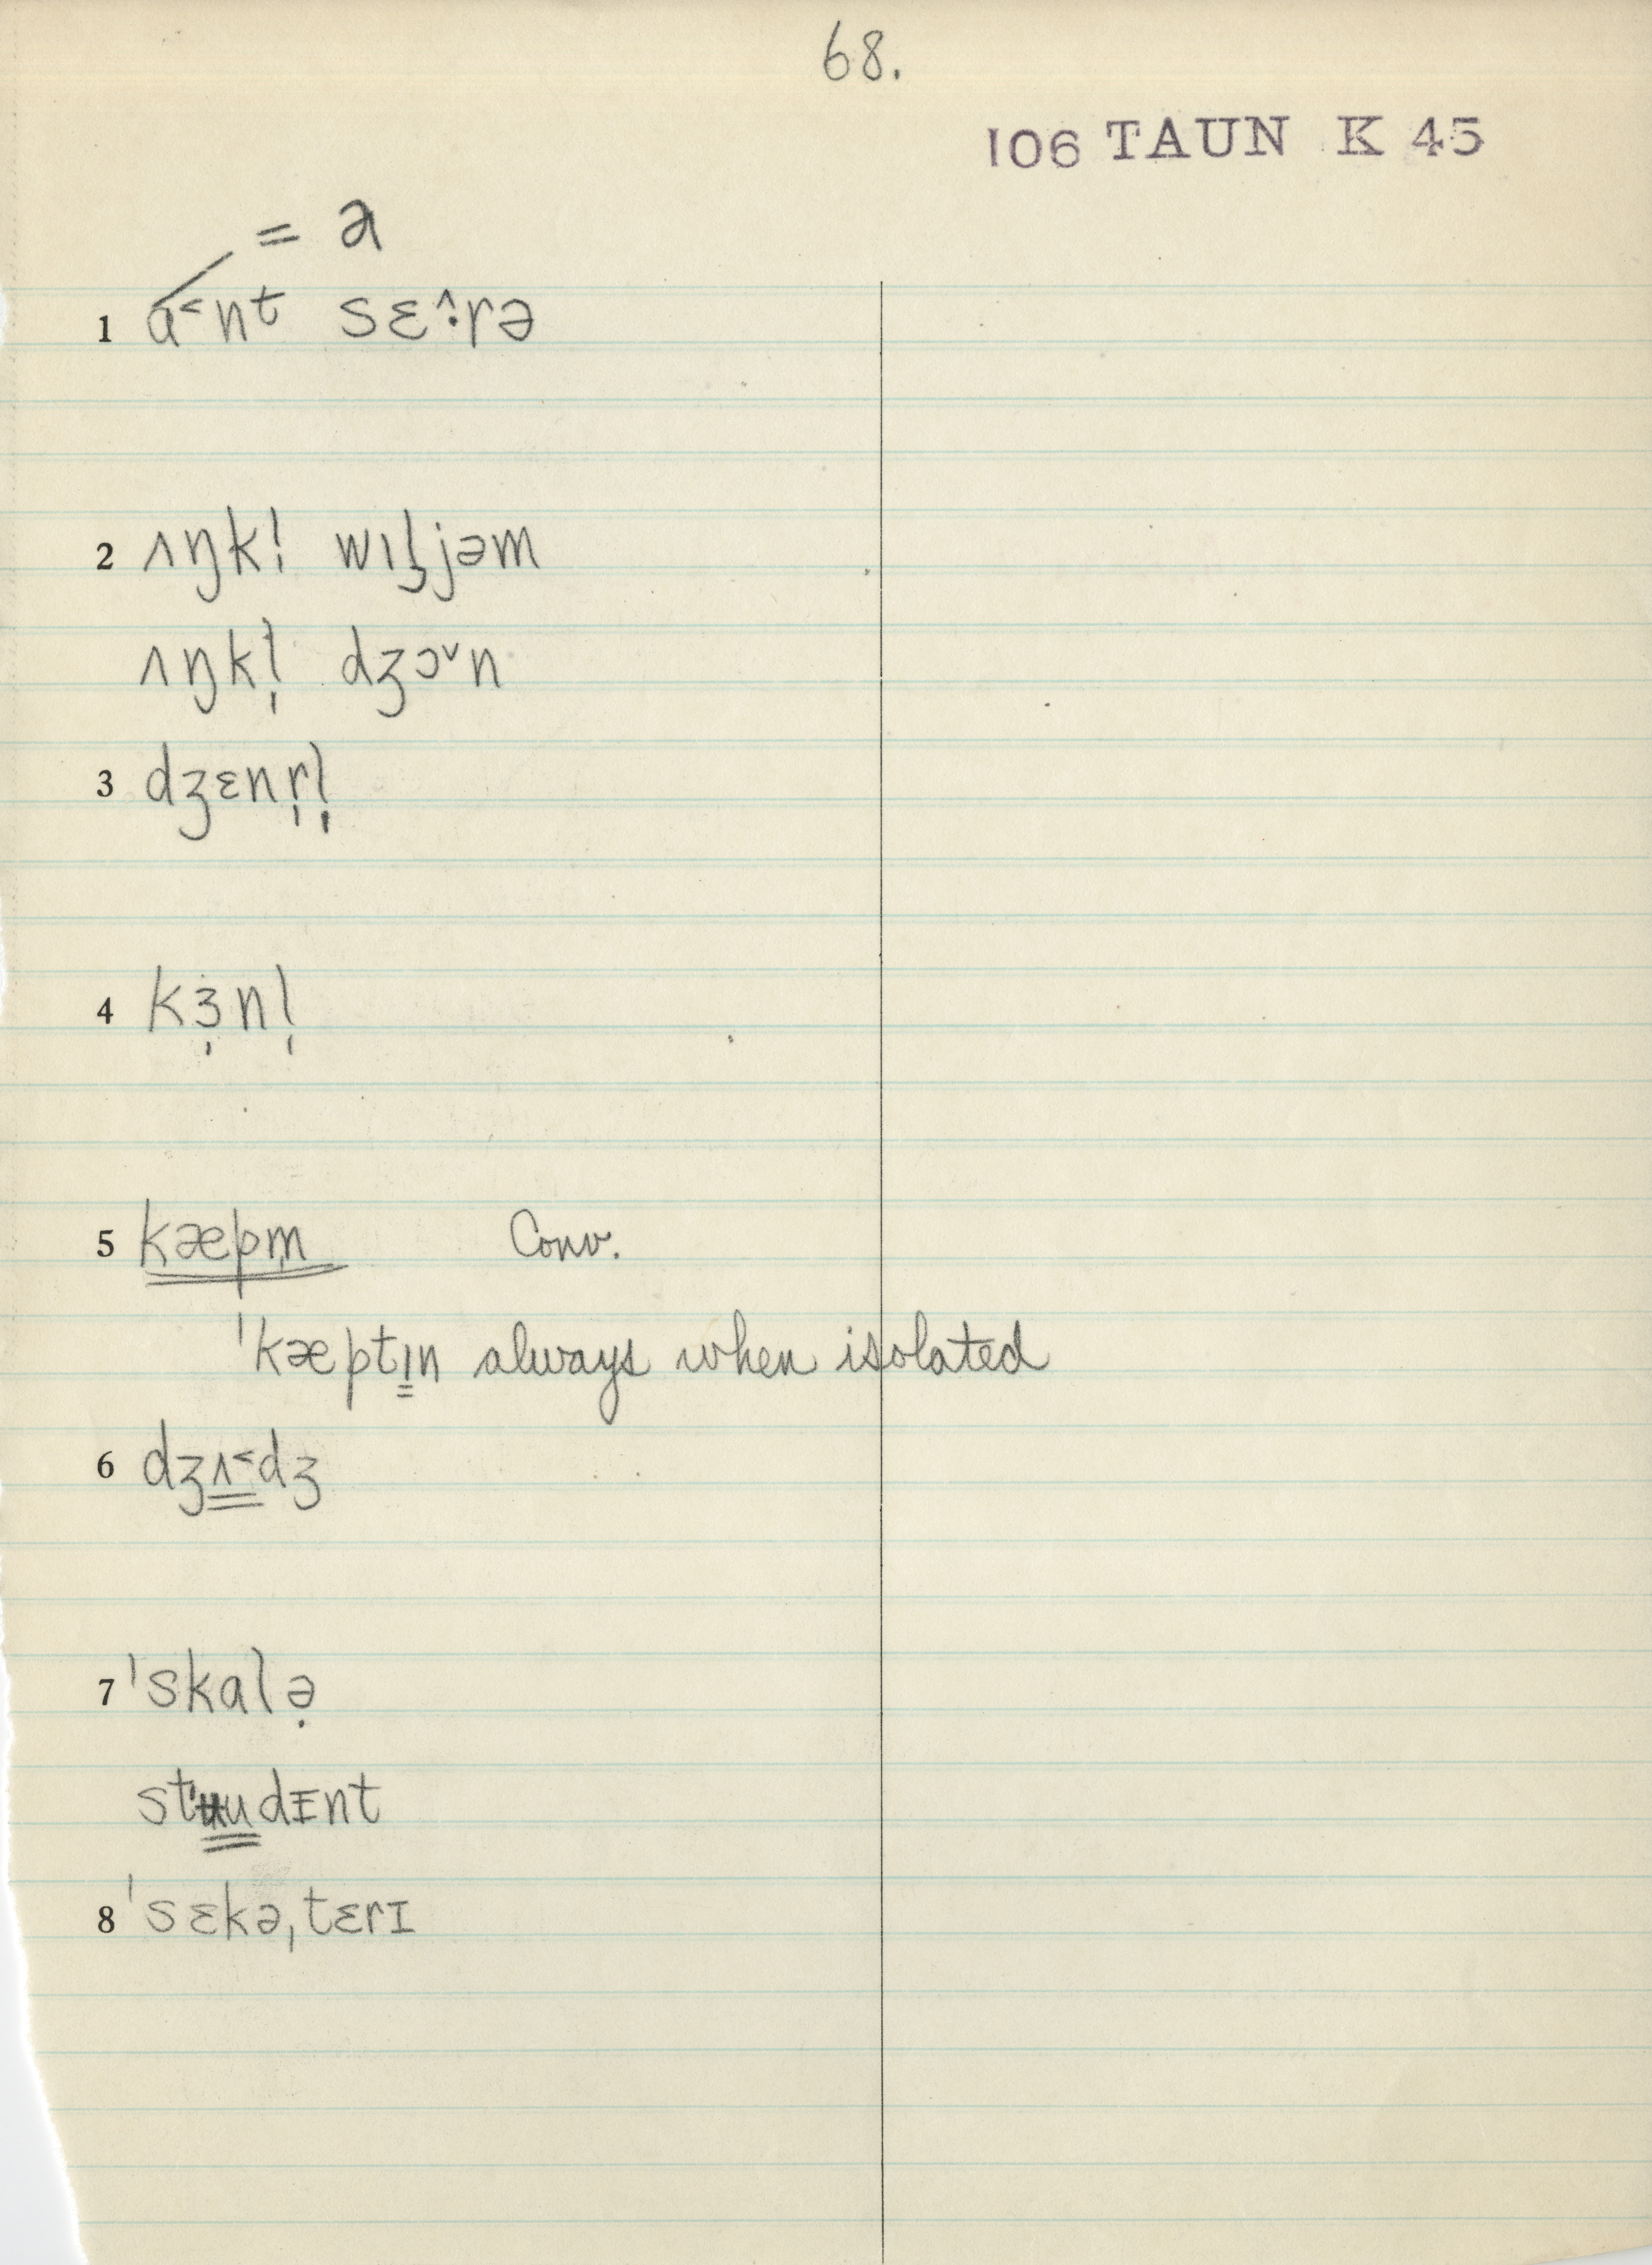 68.
106 TAUN K 45
= a
1 a˂nt sɛ˄·rə
2 ʌŋkl̩ wɪl̡jəm
ʌŋkl̩ dʒɔ˅n
3 dʒɛnr̩l̩
4 kɜ̩nl̩
5 kæpm̩ Conv.
ˈkæptɪn always when isolated
6 dʒʌ˂dʒ
7 ˈskalə̣
studɪnt
8 ˈsɛkəˌtɛrɪ